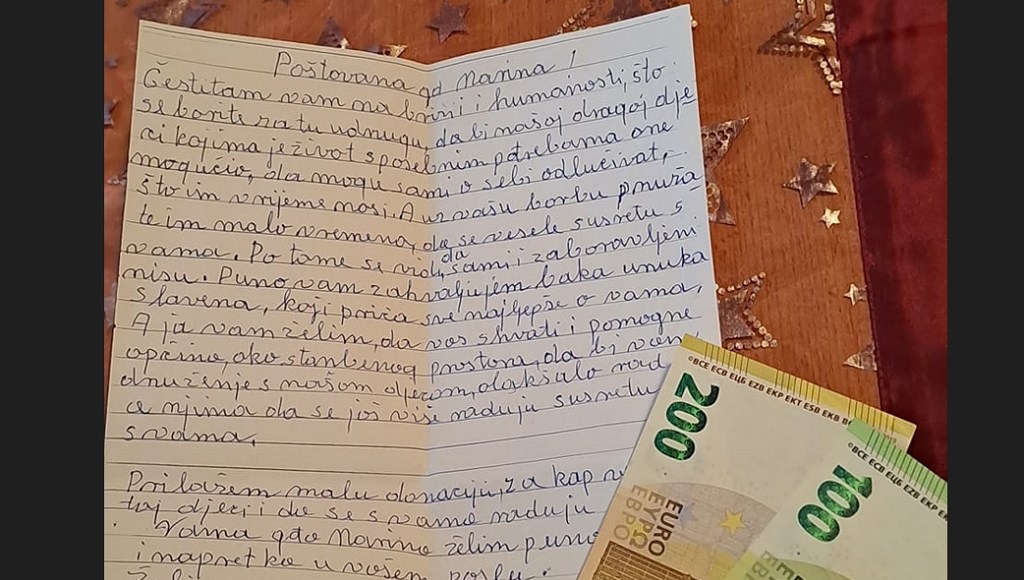 Poštovana gđ Marina!
Čestitam vam na borbi i humanosti, što
se borite za tu udrugu, da bi našoj dragoj dje
ci kojima je život s posebnim potrebama one
mogućio, da mogu sami o sebi odlučivat,
što im vrijeme nosi. A uz vašu borbu pruža
te im malo vremena, da se vesele susretu s
vama. Po tome se vidi, da sami i zaboravljeni
nisu. Puno vam zahvaljujem baka unuka
Slavena, koji priča sve najljepše o vama,
A ja vam želim, da vas shvati i pomogne
općina, oko stanbenog prostora, da bi vam
druženje s našom djecom, olakšalo rad
a njima da se još više raduju susretu
s vama.
Prilažem malu donaciju, za kap
toj djeci i da se s vama raduju
Vama gđo Marina želim puno
i napretka u vašem poslu.
©BCE ECB ЕЦБ EZB EKP EKT ESB EKB
200
EURO
ΕΥΡΩ
ЕВРО
©BCE ECB ЕЦБ EZB EKP EKT ESB EKB
100
EURO